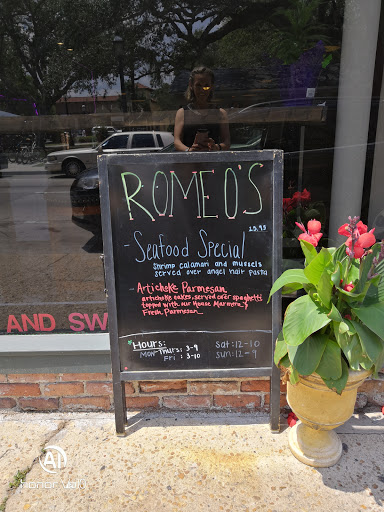 ROMEO'S
23.95
- Seafood Special
Shrimp calamari and mussels
served over angel hair pasta
- Artichoke Parmesan
artichoke cakes, served over spaghetti
topped with our House Marinera &
Fresh Parmesan
*Hours:
Mon-Thurs: 3-9 Sat: 12-10
Fri: 3-10 Sun: 12-9
AND SW
AI
honor